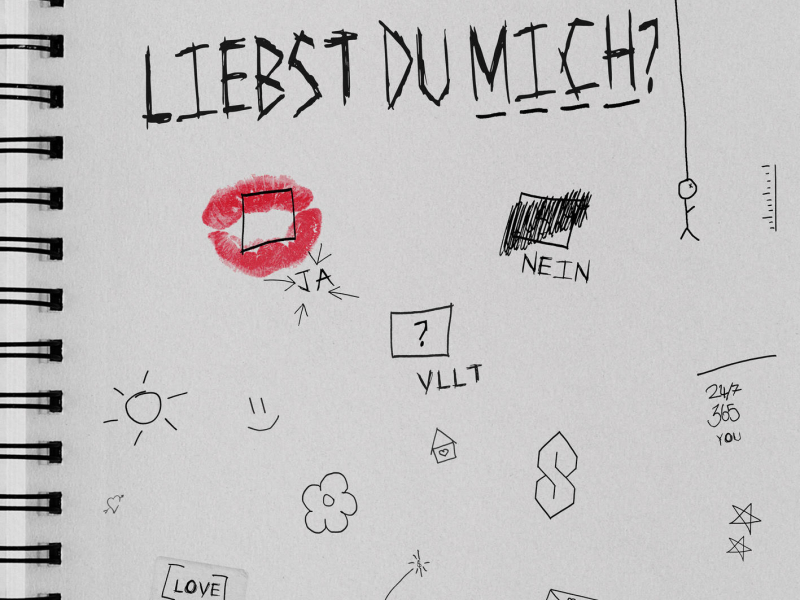 LIEBST DU MICH?
JA
NEIN
?
VLLT
24/7
365
YOU
LOVE